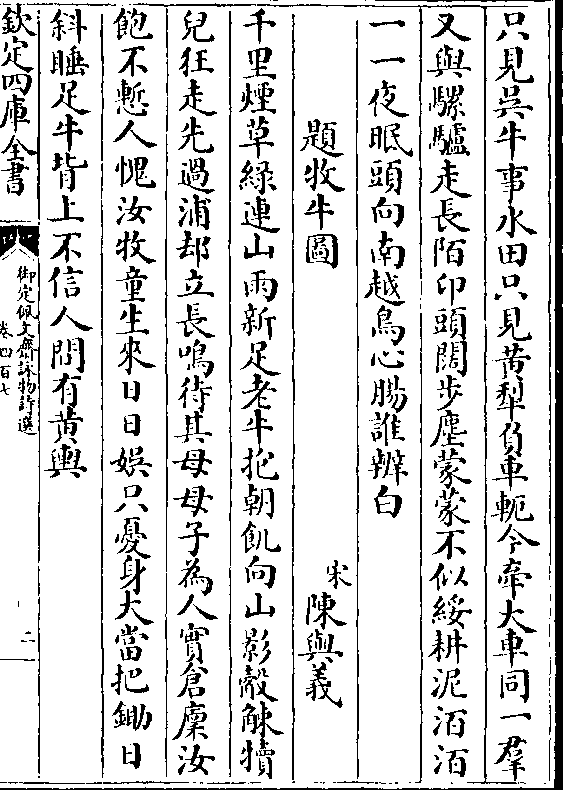 只見吳牛事水田只見黄犁負車軛今牽大車同一羣
又與騾驢走長陌卬頭闊步塵蒙蒙不似緩耕泥洦洦
一一夜眠頭向南越鳥心腸誰辨白
題牧牛圖
宋陳與義
千里煙草綠連山雨新足老牛抱朝飢向山影觳觫犢
兒狂走先過浦却立長鳴待其母母子為人實倉廩汝
飽不慙人愧汝牧童生來日日娯只憂身大當把鋤日
斜睡足牛背上不信人間有黄輿
欽定四庫全書
御定佩文齋詠物詩選
卷四百七
二